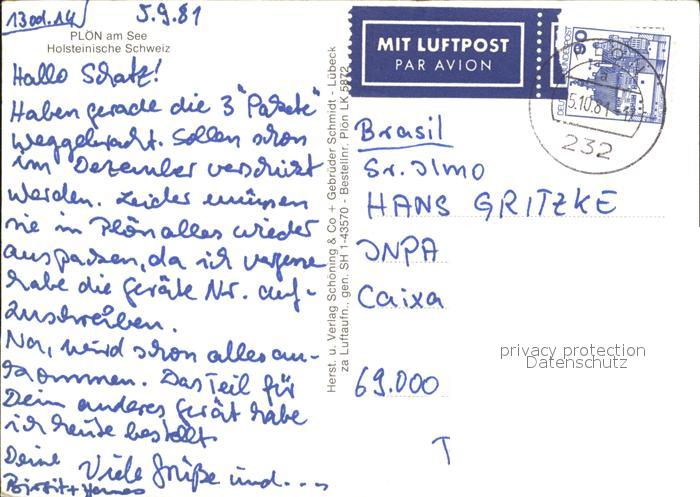 13od.14
5.9.81
PLÖN am See
Holsteinische Schweiz
Hallo Schatz!
Haben gerade die 3 "Pakete"
weggebracht. Sollen schon
im Dezember verschickt
werden. Leider müssen
sie in Plön alles wieder
auspacken, da ich vergessen
habe die Geräte Nr. auf-
zuschreiben.
Na, wird schon alles an-
kommen. Das Teil für
Dein anderes Gerät habe
ich heute bestellt.
Viele Grüße und....
Deine
Birgit +
Herst. u. Verlag Schöning & Co + Gebrüder Schmidt - Lübeck
za Luftaufn., gen. SH 1-43570 - Bestellnr. Plön LK 5872
MIT LUFTPOST
PAR AVION
DEUTSCHE BUNDESPOST
90
5.10.81
232
Brasil
Sr. Ilmo
HANS GRITZKE
INPA
Caixa
69.000
privacy protection
Datenschutz